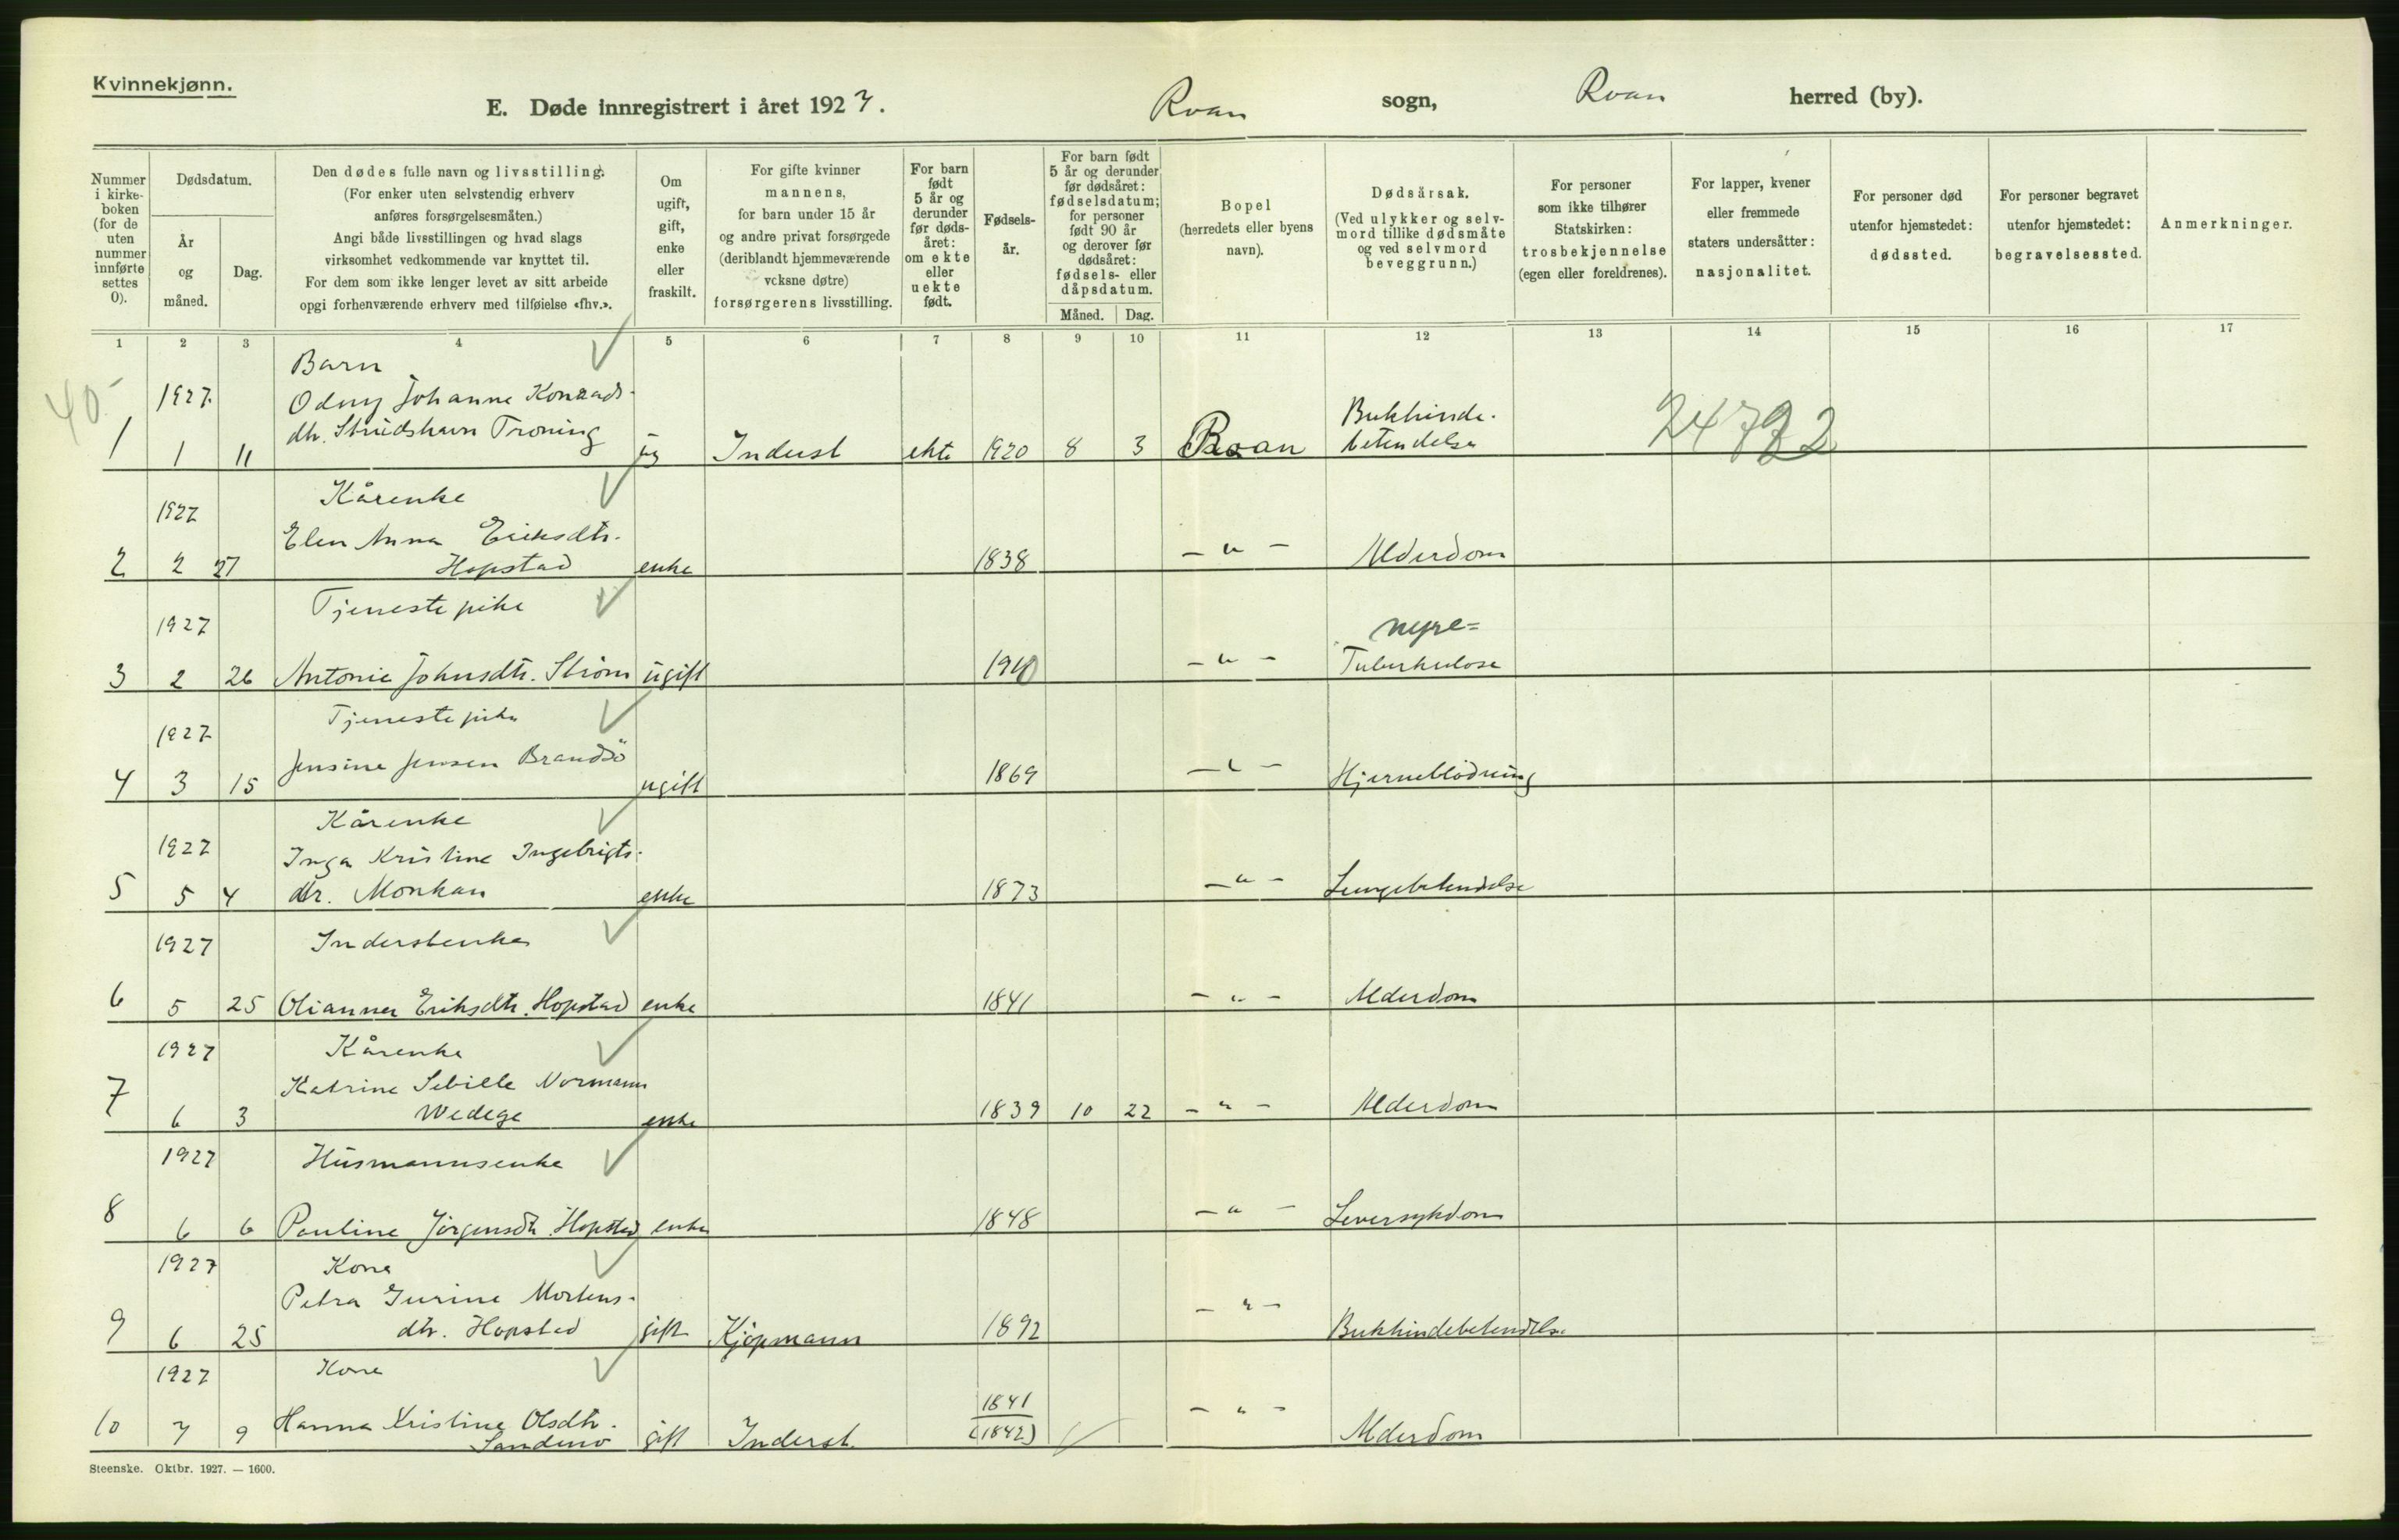 Kvinnekjønn.
E. Døde innregistrert i året 1927. Roan sogn, Roan herred (by).
Nummer i kirke-boken (for de uten nummer innførte settes 0).
Dødsdatum.
År og måned.
Dag.
Den dødes fulle navn og livsstilling.
(For enker uten selvstendig erhverv
anføres forsørgelsesmåten.)
Angi både livsstillingen og hvad slags
virksomhet vedkommende var knyttet til.
For dem som ikke lenger levet av sitt arbeide
opgi forhenværende erhverv med tilføielse «fhv.».
Om
ugift,
gift,
enke
eller
fraskilt.
For gifte kvinner
mannens,
for barn under 15 år
og andre privat forsørgede
(deriblandt hjemmeværende
vcksne døtre)
forsørgerens livsstilling.
For barn
født
5 år og
derunder
før døds-
året:
om ekte
eller
uekte
født.
Fødsels-
år.
For barn født
5 år og derunder
før dødsåret:
fødselsdatum;
for personer
født 90 år
og derover før
dødsåret:
fødsels- eller
dåpsdatum.
Måned. Dag.
Bopel
(herredets eller byens
navn).
Dødsårsak.
(Ved ulykker og selv-
mord tillike dødsmåte
og ved selvmord
beveggrunn.)
For personer
som ikke tilhører
Statskirken:
trosbekjennelse
(egen eller foreldrenes).
For lapper, kvener
eller fremmede
staters undersåtter:
nasjonalitet.
For personer død
utenfor hjemstedet:
dødssted.
For personer begravet
utenfor hjemstedet:
begravelsessted.
Anmerkninger.
1 2 3 4 5 6 7 8 9 10 11 12 13 14 15 16 17
40-
Barn
1927 Odny Johanne Konrads- Bukhinde-
1 1 11 dtr. Troning ug Inderst ekte 1920 8 3 Roan betendelse
Kårenke
1927 Elen Anna Eriksdtr.
2 2 27 Hopstad enke 1838 - " - Alderdom
Tjenestepike
1927 nyre=
3 2 26 Antonie Johnsdtr. Strøm ugift 1910 - " - Tuberkulose
Tjenestepike
1927 Jensine Jensen Brandsö
4 3 15 ugift 1869 - " - Hjerneblödning
Kårenke
1927 Inga Kristine Ingebrigts-
5 5 4 dtr. Monkan enke 1873 - " - Lungebetendelse
1927 Inderstenke
6 5 25 Olianna Eriksdtr. Hopstad enke 1841 - " - Alderdom
1927 Kårenke
Katrine Sebille Normann
7 6 3 Wedege enke 1839 10 22 - " - Alderdom
1927 Husmannsenke
8 6 6 Pauline Jörgensdtr. Hopstad enke 1848 - " - Leversykdom
1927 Kone
Petra Gurine Mortens-
9 6 25 dtr. Hopstad gift Kjöpmann 1892 - " - Bukhindebetendelse
1927 Kone
1841
10 7 9 Hanna Kristine Olsdtr. gift Inderst. (1842) - " - Alderdom
Steenske. Oktbr. 1927. — 1600.